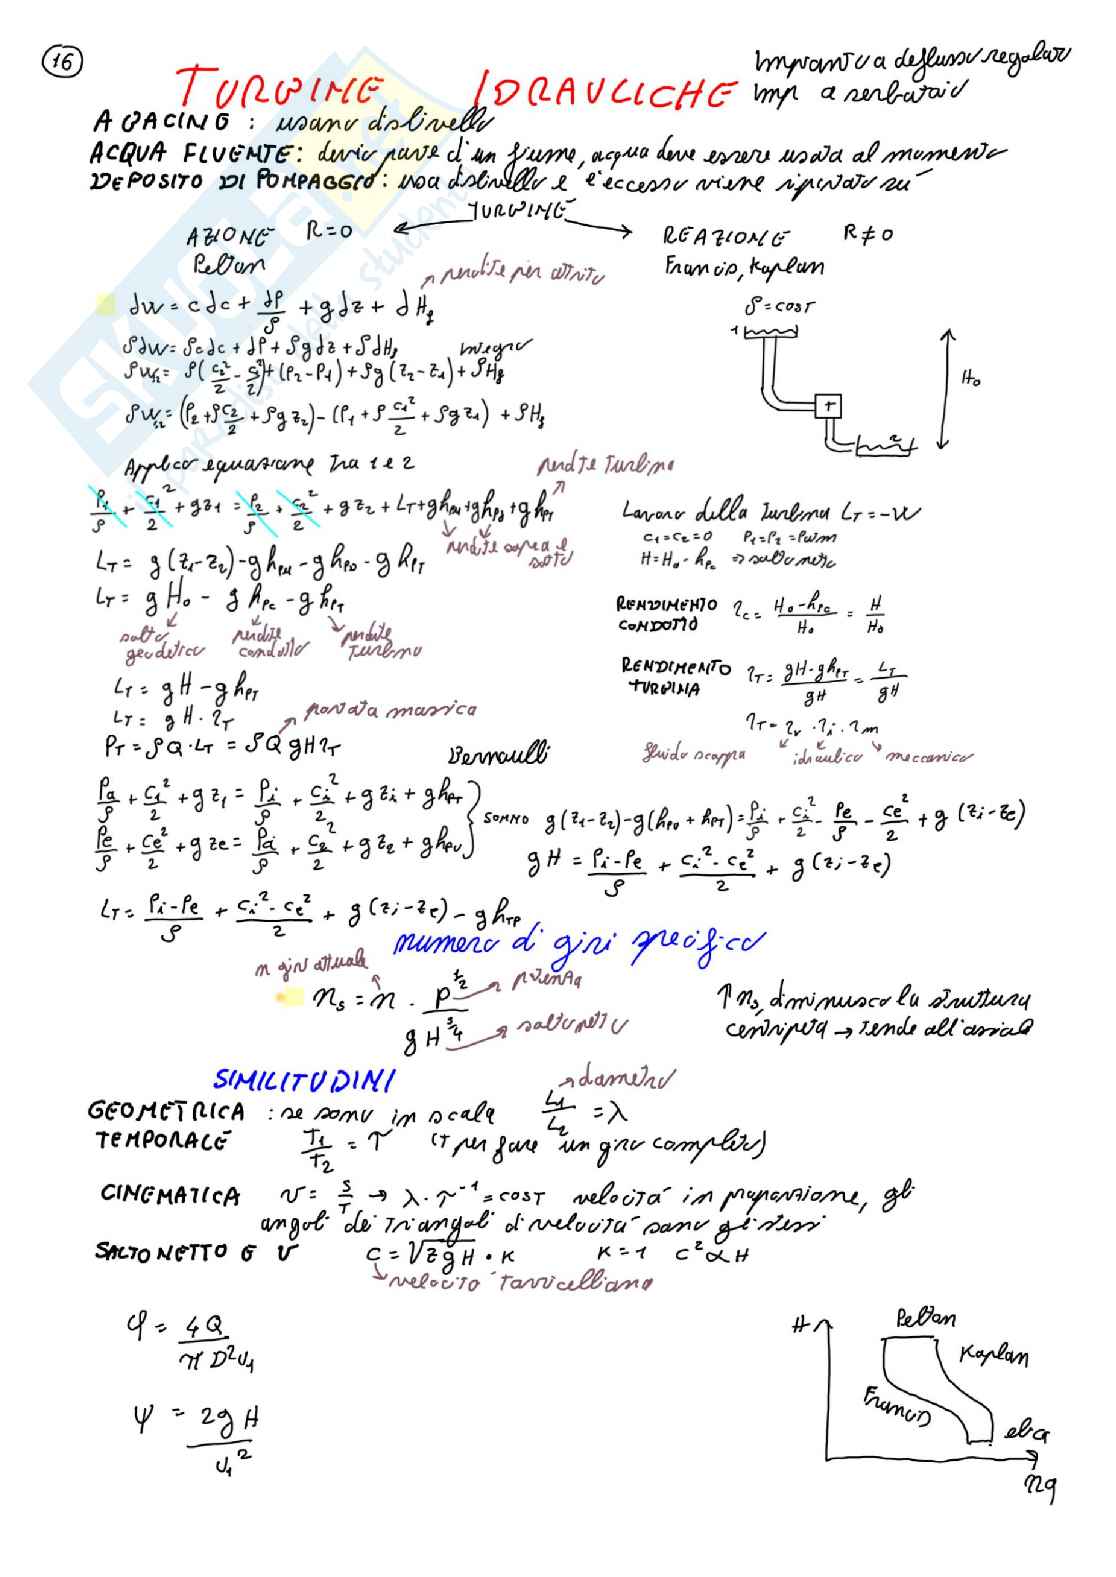 16
TURBINE IDRAULICHE
Impianti a deflusso regolato
Imp a serbatoio
A BACINO : usano dislivello
ACQUA FLUENTE: devio parte d'un fiume, acqua deve essere usata al momento
DEPOSITO DI POMPAGGIO: usa dislivello e l'eccesso viene riportato su
TURBINE
AZIONE R=0
Pelton
REAZIONE R≠0
Francis, Kaplan
perdite per attrito
dw = cdc + dP/ρ + gdz + dHf
ρdw = ρcdc + dP + ρgdz + ρdHf integro
ρw12 = ρ(c2²/2 - c1²/2) + (P2-P1) + ρg(z2-z1) + ρHf
ρw12 = (P2 + ρc2/2 + ρgz2) - (P1 + ρc1²/2 + ρgz1) + ρHf
ρ=cost
1
H0
T
2
Applico equazione tra 1 e 2
perdite turbina
P1/ρ + c1²/2 + gz1 = P2/ρ + c2²/2 + gz2 + LT + ghPM + ghPD + ghPT
perdite sopra e sotto
Lavoro della turbina LT = -W
c1=c2=0 P1=P2=Patm
H=H0-hPc ⇒ salto netto
LT = g(z1-z2) - ghPM - ghPD - ghPT
LT = gH0 - ghPC - ghPT
salto geodetico
perdite condotto
perdite turbina
RENDIMENTO CONDOTTO ηc = H0-hPc/H0 = H/H0
LT = gH - ghPT
LT = gH · ηT
portata massica
PT = ρQ · LT = ρQgHηT
RENDIMENTO TURBINA ηT = gH-ghPT/gH = LT/gH
ηT = ηv · ηi · ηm
fluido scappa idraulico meccanico
Bernoulli
Pa/ρ + c1²/2 + gz1 = Pi/ρ + ci²/2 + gzi + ghPT
Pe/ρ + ce²/2 + gze = Pa/ρ + c2²/2 + gz2 + ghPV
SOMMO g(z1-z2) - g(hPV + hPT) = Pi/ρ + ci²/2 - Pe/ρ - ce²/2 + g(zi-ze)
gH = Pi-Pe/ρ + ci²-ce²/2 + g(zi-ze)
LT = Pi-Pe/ρ + ci²-ce²/2 + g(zi-ze) - ghTP
numero di giri specifico
n giri attuale
ns = n · P^1/2 / gH^3/4
potenza
salto netto
↑ns, diminuisco la struttura
centripeta → tende all'assiale
SIMILITUDINI
diametro
GEOMETRICA : se sono in scala L1/L2 = λ
TEMPORALE T1/T2 = τ (T per fare un giro completo)
CINEMATICA v = s/T → λ·τ⁻¹ = cost velocità in proporzione, gli
angoli dei triangoli di velocità sono gli stessi
SALTO NETTO E V c = √2gH · K K=1 c² ∝ H
velocità torricelliana
φ = 4Q/πD²u1
ψ = 2gH/u1²
H
Pelton
Kaplan
Francis
elica
nq